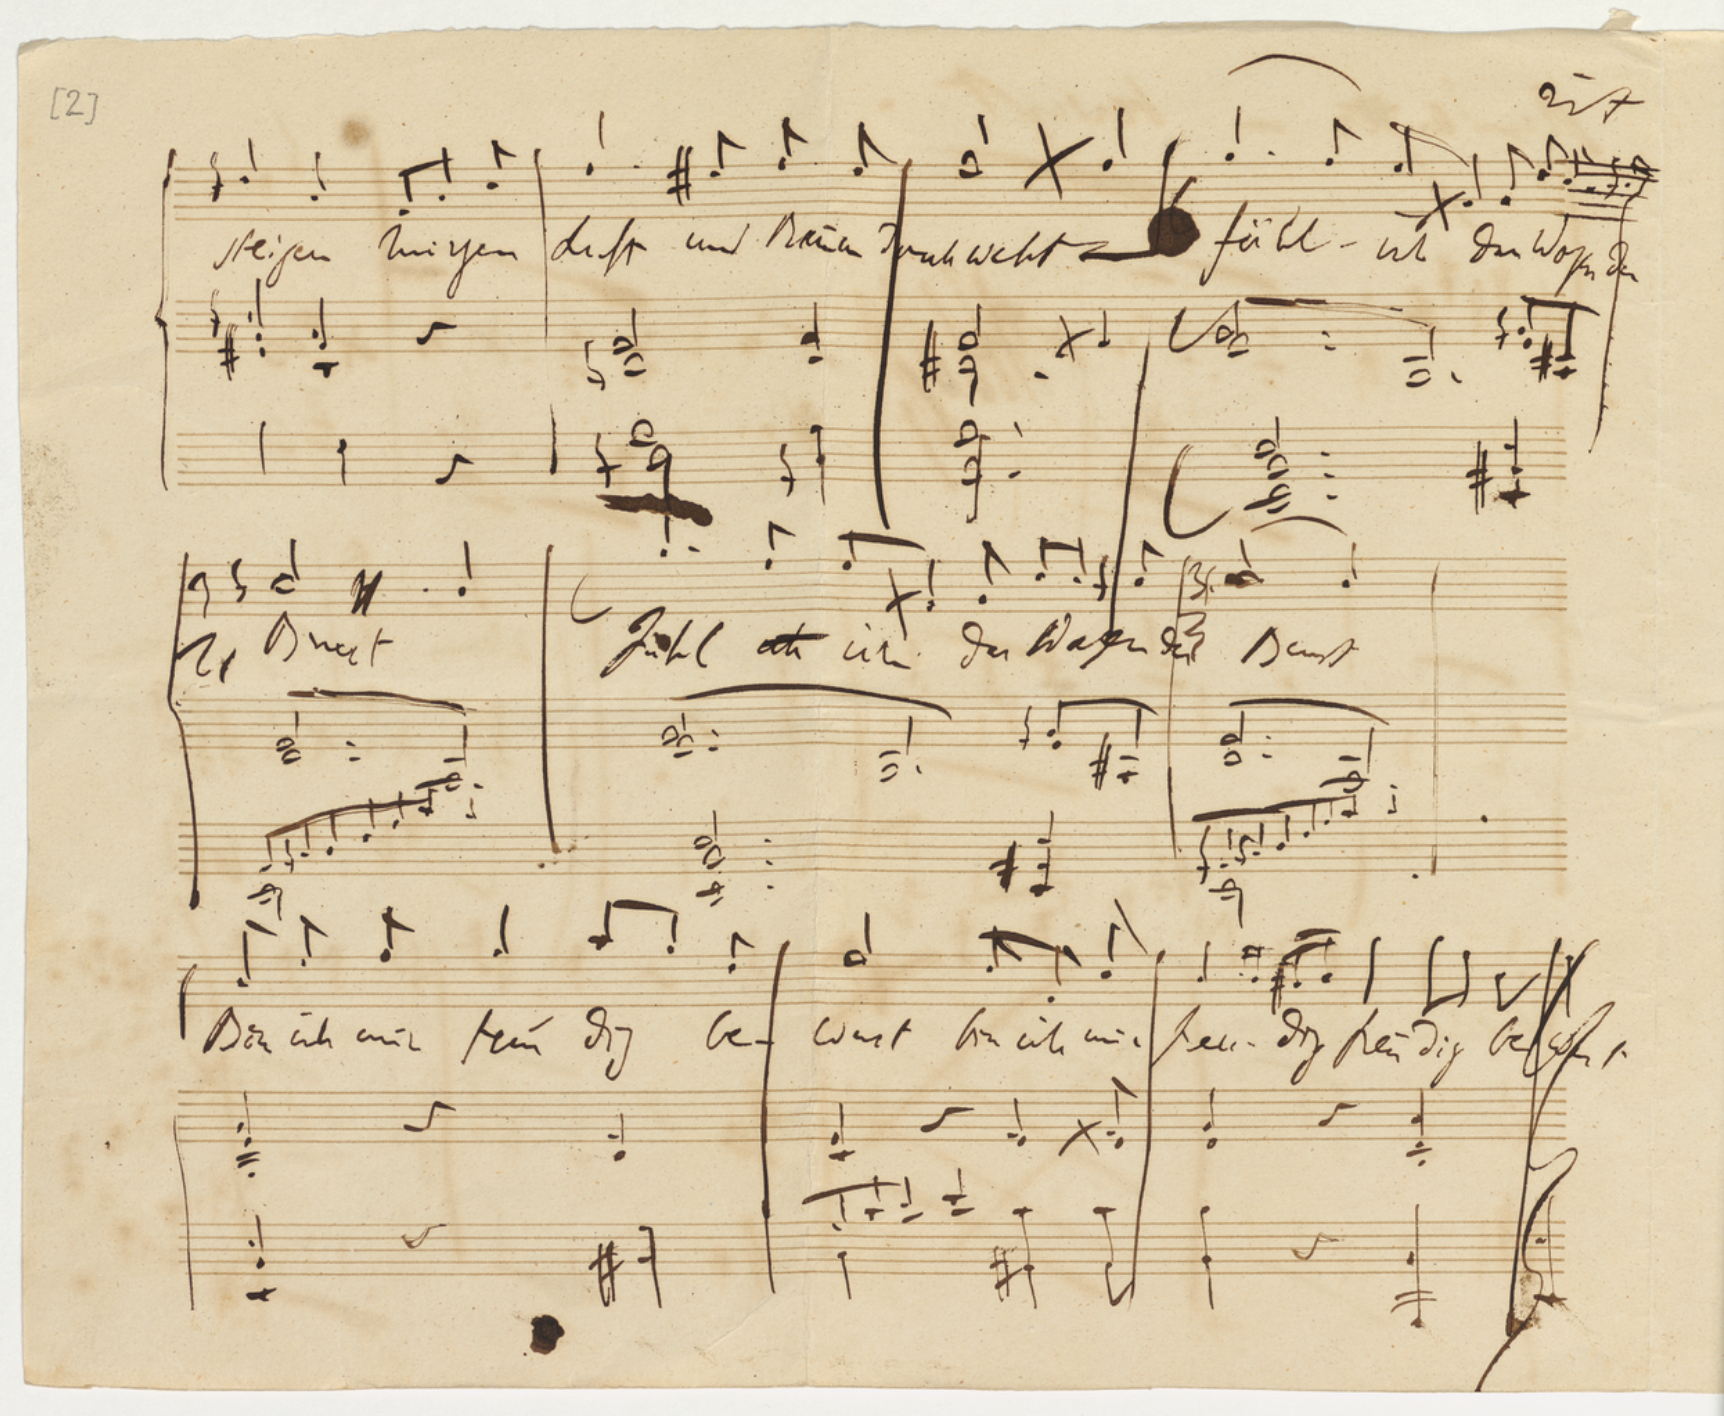 [2]
rit
steigen Luft und durchweht fühl - ich das Wogen der
Brust Fühl ich das Wogen der Brust
Bin ich mir freu dig be- wust bin ich mir freu- dig freu dig bewust